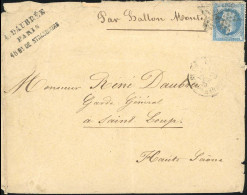 A. DAUBRÉE
PARIS
Par Ballon Monté
Monsieur René Daubrée
Garde Général
à Saint Loup
Haute Saône